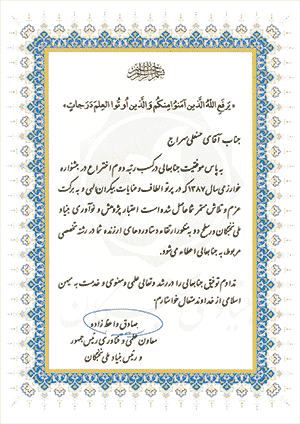 بسم الله الرحمن الرحیم
«یرفع الله الذین آمنوا منکم والذین أوتوا العلم درجات»
جناب آقای حسنعلی سراج
به پاس موفقیت جنابعالی در کسب رتبه دوم اختراع در جشنواره
خوارزمی سال ۱۳۸۷ که در پرتو الطاف و عنایات بیکران الهی و به برکت
عزم و تلاش مستمر شما حاصل شده است اعتبار پژوهش و نوآوری بنیاد
ملی نخبگان در سطح دو به منظور ارتقاء دستاوردهای ارزنده شما در رشته تخصصی
مربوط به جنابعالی اعطاء می‌شود.
تداوم توفیق جنابعالی را در رشد و تعالی علمی و معنوی و خدمت به میهن
اسلامی از خداوند متعال خواستارم.
صادق واعظ زاده
معاون علمی و فناوری رئیس جمهور
و رئیس بنیاد ملی نخبگان